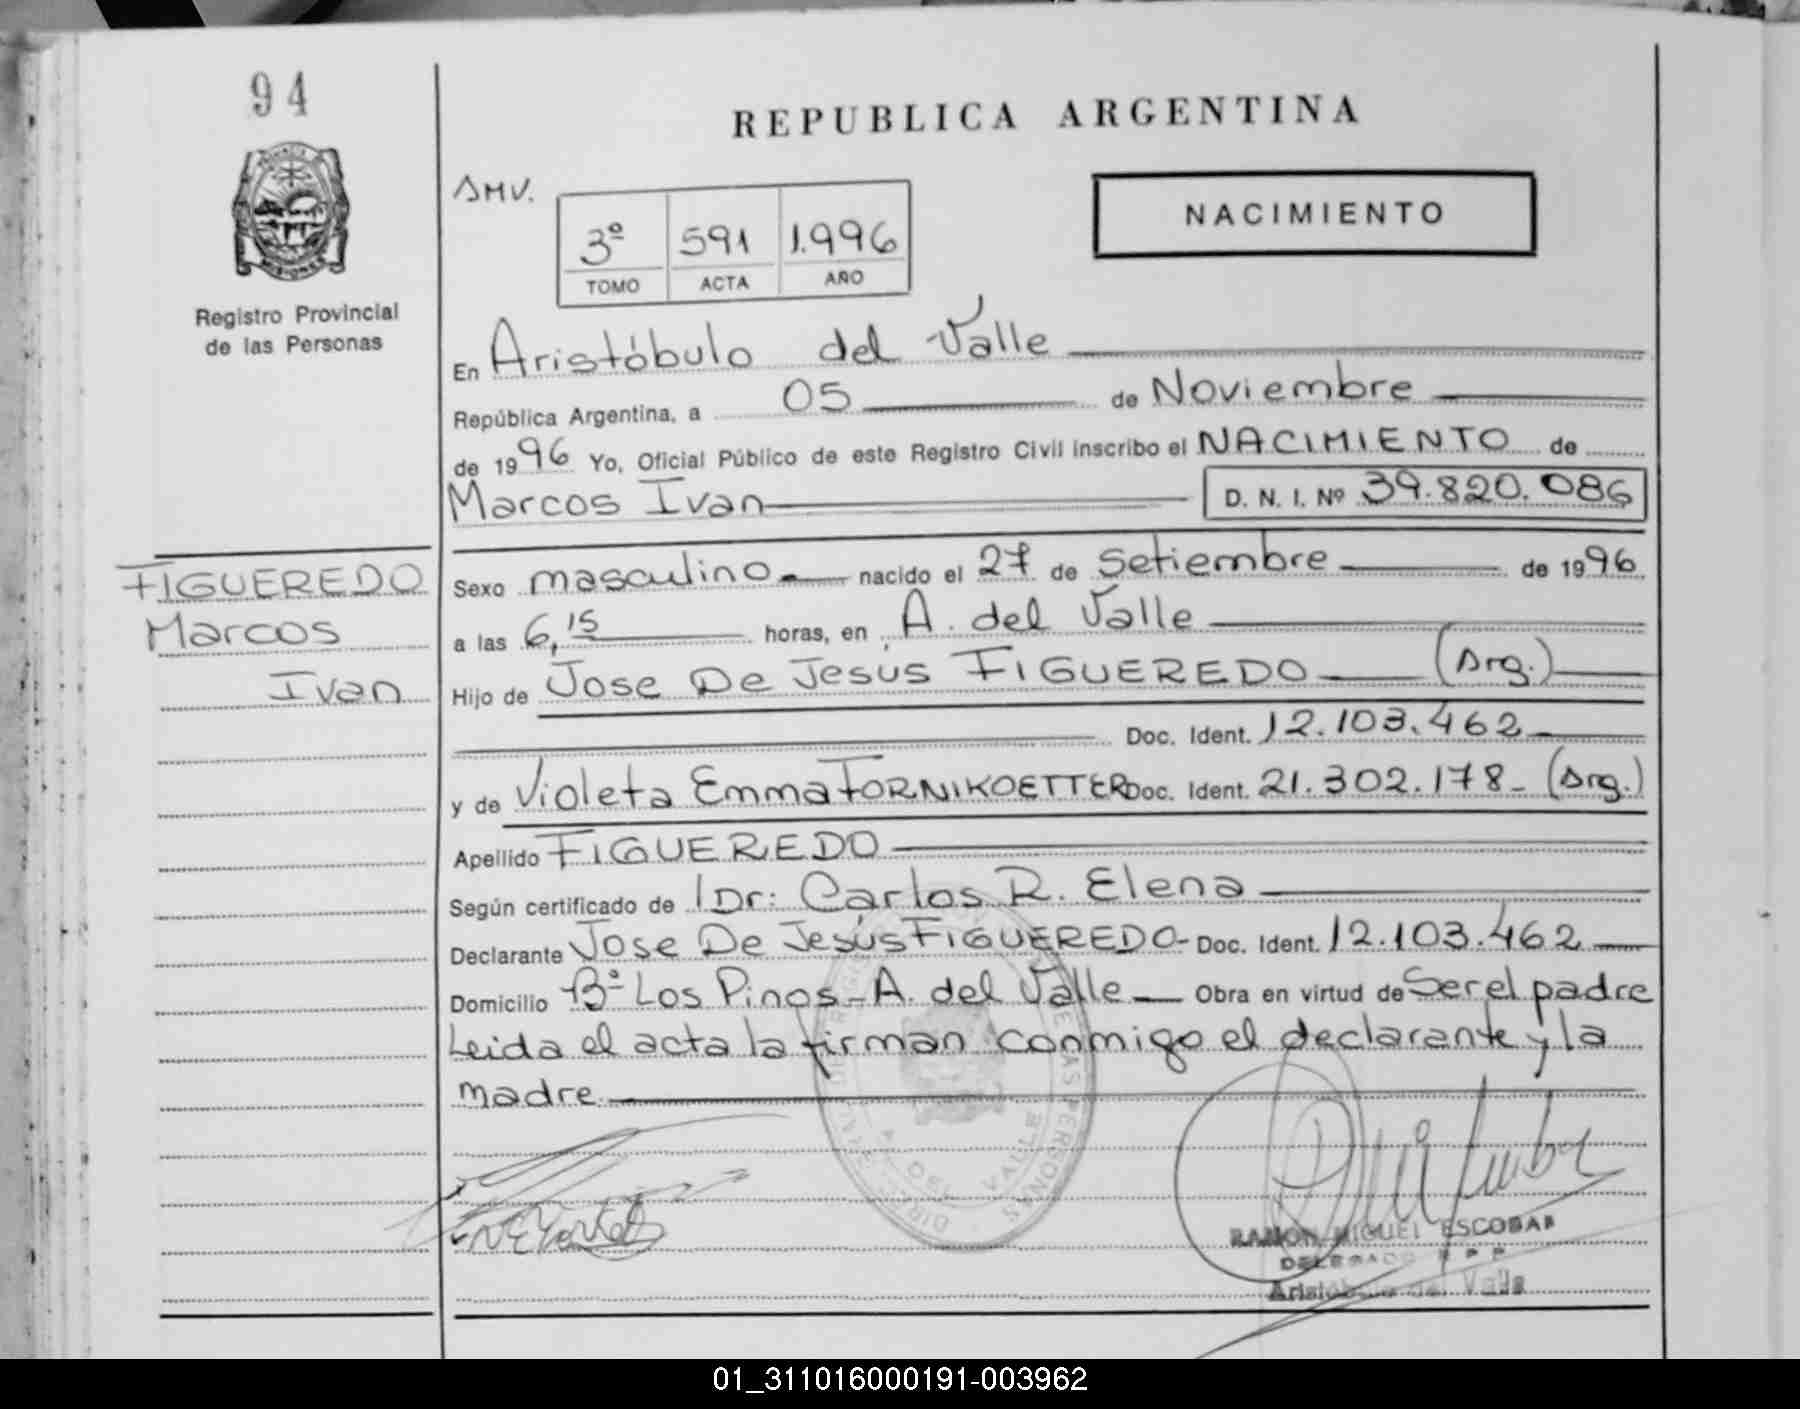 94
REPUBLICA ARGENTINA
PROVINCIA DE
MISIONES
Registro Provincial
de las Personas
AMV.
3º 591 1.996
TOMO ACTA AÑO
NACIMIENTO
En Aristóbulo del Valle
República Argentina, a 05 de Noviembre
de 1996 Yo, Oficial Público de este Registro Civil inscribo el NACIMIENTO de
Marcos Ivan D. N. I. Nº 39.820.086
FIGUEREDO
Marcos
Ivan
Sexo masculino nacido el 27 de Setiembre de 1996
a las 6,15 horas, en A. del Valle
Hijo de Jose De Jesús FIGUEREDO (Arg.)
Doc. Ident. 12.103.462
y de Violeta Emma FORNIKOETTER Doc. Ident. 21.302.178- (Arg.)
Apellido FIGUEREDO
Según certificado de Dr: Carlos R. Elena
Declarante Jose De Jesús FIGUEREDO- Doc. Ident. 12.103.462
Domicilio Bº Los Pinos-A. del Valle Obra en virtud de Ser el padre
Leida el acta la firman conmigo el declarante y la
madre
A. DEL VALLE
RAMON MIGUEL ESCOBAR
DELEGADO R P P
Aristóbulo del Valle
01_311016000191-003962